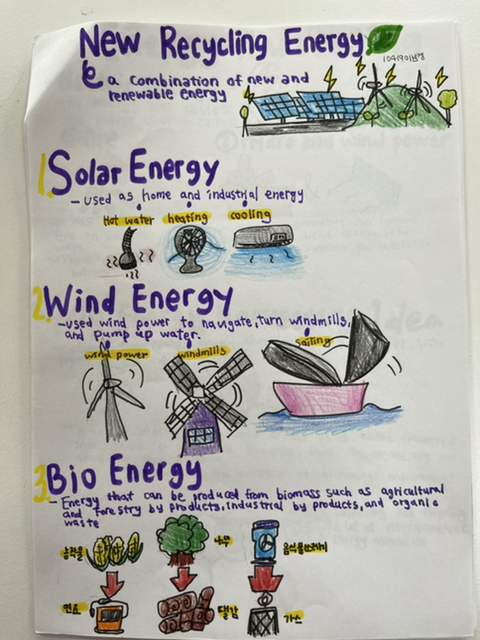 New Recycling Energy
a combination of new and
renewable energy
1. Solar Energy
- used as home and industrial energy
Hot water heating cooling
2. Wind Energy
- used wind power to navigate, turn windmills,
and pump up water.
wind power windmills sailing
3. Bio Energy
- Energy that can be produced from biomass such as agricultural
and forestry by products, industrial by products, and organic
waste
농작물 나무 음식물쓰레기
연료 땔감 가스